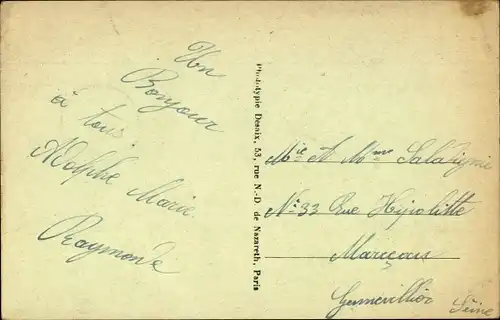 Un
Bonjour
à tous
Adolphe Marie
Raymonde
Phototypie Desaix, 53, rue N.-D. de Nazareth, Paris
Mie A Mme
N° 33 Rue Hipolitte
Marçais
Genevillier
Seine